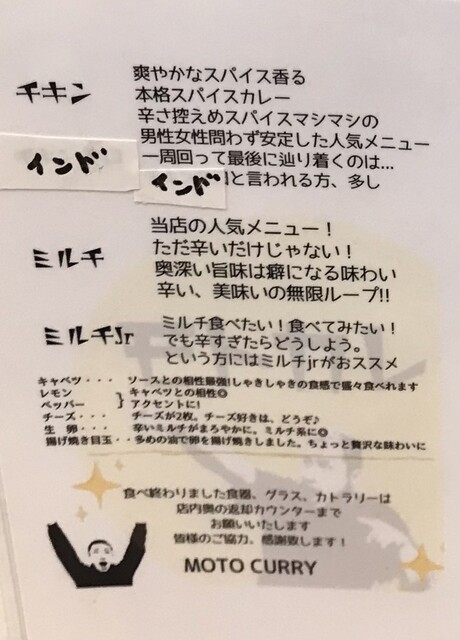 チキン
爽やかなスパイス香る
本格スパイスカレー
辛さ控えめスパイスマシマシの
男性女性問わず安定した人気メニュー
インド
一周回って最後に辿り着くのは...
インド と言われる方、多し
ミルチ
当店の人気メニュー！
ただ辛いだけじゃない！
奥深い旨味は癖になる味わい
辛い、美味いの無限ループ!!
ミルチJr
ミルチ食べたい！食べてみたい！
でも辛すぎたらどうしよう。
という方にはミルチjrがおススメ
キャベツ・・・ ソースとの相性最強!しゃきしゃきの食感で盛々食べれます
レモン キャベツとの相性◎
ペッパー } アクセントに!
チーズ・・・ チーズが2枚。チーズ好きは、どうぞ♪
生 卵・・・ 辛いミルチがまろやかに。ミルチ系に◎
揚げ焼き目玉・・ 多めの油で卵を揚げ焼きしました。ちょっと贅沢な味わいに
食べ終わりました食器、グラス、カトラリーは
店内奥の返却カウンターまで
お願いいたします
皆様のご協力、感謝致します！
MOTO CURRY